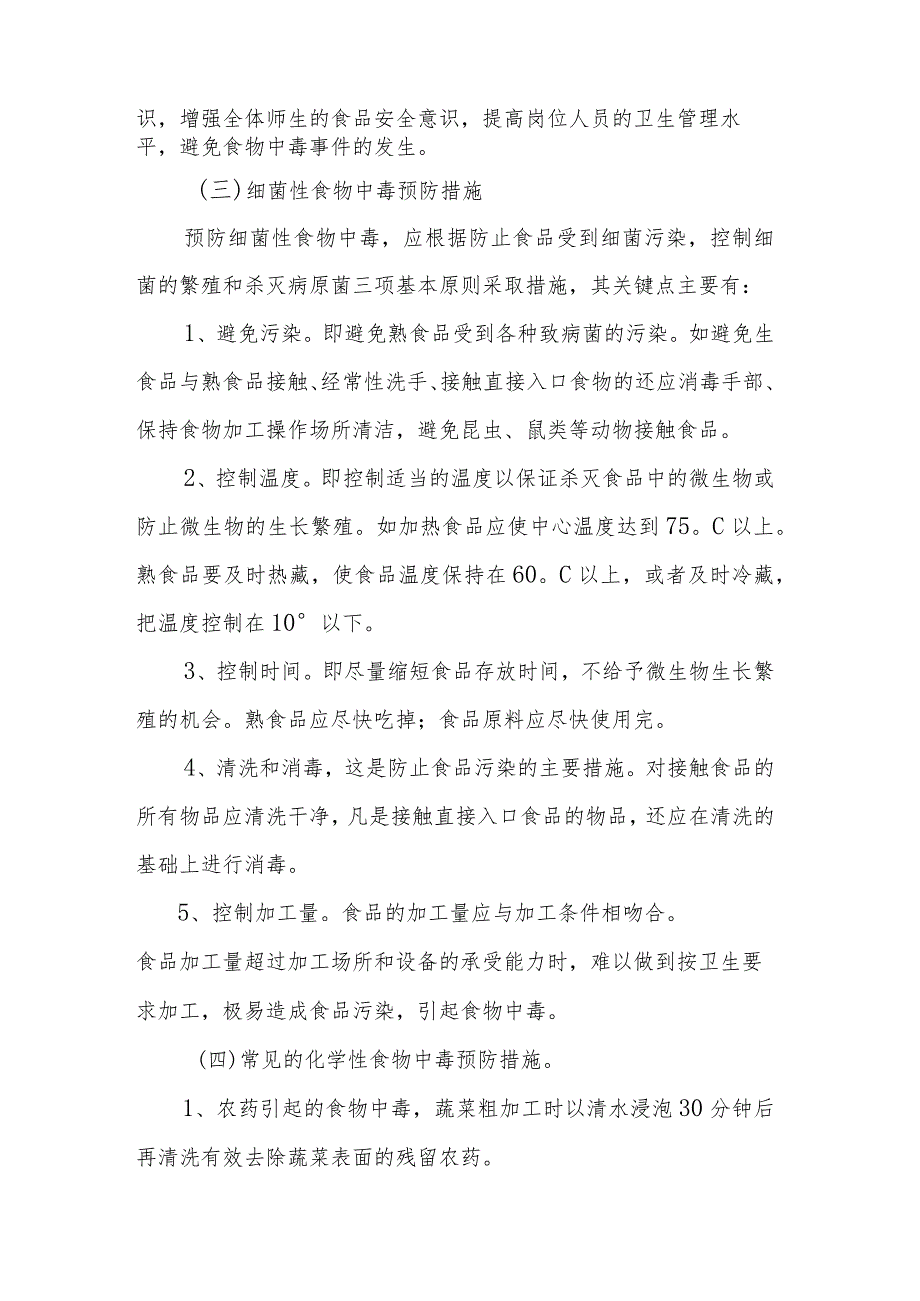 识，增强全体师生的食品安全意识，提高岗位人员的卫生管理水
平，避免食物中毒事件的发生。
(三)细菌性食物中毒预防措施
预防细菌性食物中毒，应根据防止食品受到细菌污染，控制细
菌的繁殖和杀灭病原菌三项基本原则采取措施，其关键点主要有：
1、避免污染。即避免熟食品受到各种致病菌的污染。如避免生
食品与熟食品接触、经常性洗手、接触直接入口食物的还应消毒手部、
保持食物加工操作场所清洁，避免昆虫、鼠类等动物接触食品。
2、控制温度。即控制适当的温度以保证杀灭食品中的微生物或
防止微生物的生长繁殖。如加热食品应使中心温度达到75。C以上。
熟食品要及时热藏，使食品温度保持在60。C以上，或者及时冷藏，
把温度控制在10°以下。
3、控制时间。即尽量缩短食品存放时间，不给予微生物生长繁
殖的机会。熟食品应尽快吃掉；食品原料应尽快使用完。
4、清洗和消毒，这是防止食品污染的主要措施。对接触食品的
所有物品应清洗干净，凡是接触直接入口食品的物品，还应在清洗的
基础上进行消毒。
5、控制加工量。食品的加工量应与加工条件相吻合。
食品加工量超过加工场所和设备的承受能力时，难以做到按卫生要
求加工，极易造成食品污染，引起食物中毒。
(四)常见的化学性食物中毒预防措施。
1、农药引起的食物中毒，蔬菜粗加工时以清水浸泡30分钟后
再清洗有效去除蔬菜表面的残留农药。